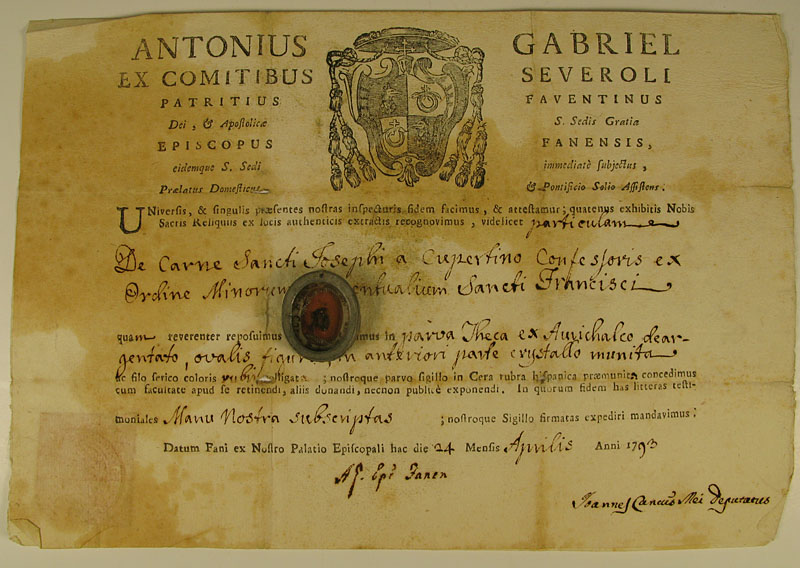 ANTONIUS GABRIEL
EX COMITIBUS SEVEROLI
PATRITIUS FAVENTINUS
Dei, & Apostolicæ S. Sedis Gratia
EPISCOPUS FANENSIS,
eidemque S. Sedi immediatè subjectus,
Prælatus Domesticus & Pontificio Solio Assistens.
UNiversis, & singulis præsentes nostras inspecturis fidem facimus, & attestamur; quatenus exhibitis Nobis
Sacris Reliquiis ex locis authenticis extractis recognovimus, videlicet particulam
De Carne Sancti Josephi a Cupertino Confessoris ex
Ordine Minorum entualium Sancti Francisci
quam reverenter reposuimus imus in parva Theca ex Aurichalco dear-
gentato, ovalis figuræ, in anteriori parte crystallo munita
ac filo serico coloris rubri colligata; nostroque parvo sigillo in Cera rubra hispanica præmunita concedimus
cum facultate apud se retinendi, aliis donandi, necnon publicè exponendi. In quorum fidem has litteras testi-
moniales Manu Nostra subscriptas; nostroque Sigillo firmatas expediri mandavimus;
Datum Fani ex Nostro Palatio Episcopali hac die 24 Mensis Aprilis Anni 1793
Ep̃ Fanen
Joannes Mei Deputatus